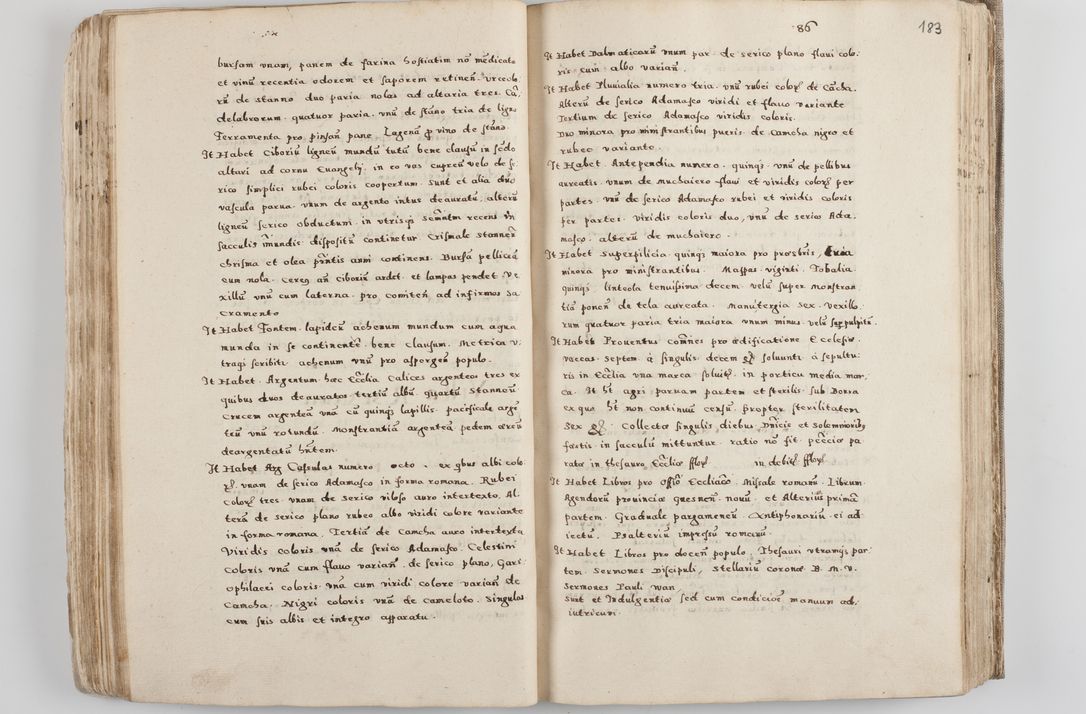 bursam unam, panem de farina hostiatim nõ medicato
et vinũ recentia odorem et saporem retineñ. Urceolo
rũ de stanno duo paria nolas ad altaria tres. Cã
delabrorum quatuor paria. unũ de stãno tria de ligno
Ferramenta pro pinsañ pane. Lagenã p vino de stãno
It Habet Ciboriũ ligneũ mundũ tutũ bene clausũ in sedo
altari ad cornu Euangelÿ. in eo vas cupreũ velo de se
rico simplici rubei coloris coopertum. sunt et alia duo
vascula parua. unum de argento intus deauratũ. alterũ
ligneũ serico obductum. in utrisq̃ sacrm̃tm recens in
sacculis mundis dispositũ continetur. Crismale stanneũ
chrisma et olea pr̃ntis anni continens. Bursã pelliceã
cum nola. Cereũ añ ciboriũ ardet. et lampas pendet. Ve
xillũ unũ cum laterna. pro comiteñ ad infirmos Sa
cramento
It Habet Fontem lapideũ ahenum mundum cum aqua
munda in se continentẽ bene clausum. Metrica v.
tragi scribiti ahenum unũ pro aspergeñ populo.
It Habet Argentum hæc Ecclia Calices argenteos tres ex
quibus duos deauratos tertiũ albũ. quartũ Stanneũ
Crucem argenteã unã cũ quinq̃ lapillis. pacificale argẽ
teũ unũ rotundũ. Monstrantiã argenteã pedem æreũ
deargentatũ hñtem.
It Habet Casulas numero octo. ex qbus albi colo
unam de serico Adamasco in forma romana. Rubei
Colorȝ tres. unam de serico viloso auro intertexto. Al
terã de serico plano rubeo albo viridi colore variante
in forma romana. Tertiã de Camcha auro intertexta
Viridis coloris unã de serico Adamasco. Celestini
Coloris unã cum flauo variañ. de serico plano, Gari
ophilacei coloris unã cum viridi colore variañ de
Camcha. Nigri coloris unã de cameloto. singulas
cum suis albis et integro apparatu.
86
183
It Habet Dalmaticarũ unum par de serico plano flaui colo
ris cum albo variañ.
It Habet Pluuialia numero tria. unũ rubei colorȝ de Cãcha.
Alterũ de serico Adamasco viridi et flauo variante
Tertium de serico Adamasco viridis coloris.
Duo minora pro ministrantibus pueris de Camcha nigro et
rubeo variante.
It Habet Antependia numero quinq̃. unũ de pellibus
aureatis. unum de muchaiero flaui et viridis colorȝ per
partes. unũ de serico Adamasco rubei et viridis coloris
per partes. viridis coloris duo, unũ de serico Ada
masco. alterũ de muchaiero.
It Habet superpilicia quinq̃ maiora pro prosbris, tria
minora pro ministrantibus. Mappas viginti. Tobalia
quinq̃. linteola tenuissima decem. velũ super monstran
tiã poneñ de tela aureata. Manutergia sex. vexillo
rum quatuor paria tria maiora unum minus. velũ sup pulpitũ.
It Habet Prouentus coẽs pro ædificatione Ecclesiæ.
vaccas septem. à singulis decem soluunti à sepultu
ris in Ecclia una marca soluitȝ. in porticu media mar,
ca. It ht agri paruam partem et sterilis sub Borra
ex qua ht non continuũ censũ. propter sterilitatem
Sex. Collecta singulis diebus Dnicis et solemnioribȝ
fœstis in sacculũ mittuntur. ratio nõ fit pecciæ pa
rata in thesauro Eccliæ fflorȝ in debitȝ fflorȝ
It Habet Libros pro offiõ Eccliaco. Missale romanũ. Librum
Agendorũ prouinciæ Gnesneñ. nouũ. et Alterius primã
partem. Graduale pargameneũ. Antiphonariũ ei ad
iectũ. Psalteriũ impressũ romanũ.
It Habet Libros pro doceñ populo. Thesauri utramq̃ par
tem. Sermones Discipuli, Stellariũ coronæ B. M. V.
Sermones Pauli Wan
Sunt et Indulgentiæ sed cum condicioẽ manuum ad,
iutricum.